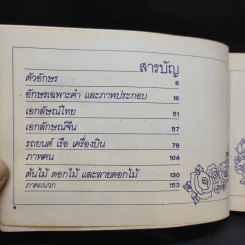 สารบัญ
ตัวอักษร 8
อักษรเฉพาะคำ และภาพประกอบ 18
เอกลัษณ์ไทย 51
เอกลักษณ์จีน 57
รถยนต์ เรือ เครื่องบิน 78
ภาพคน 104
ต้นไม้ ดอกไม้ และลายดอกไม้ 130
ภาคผนวก 153